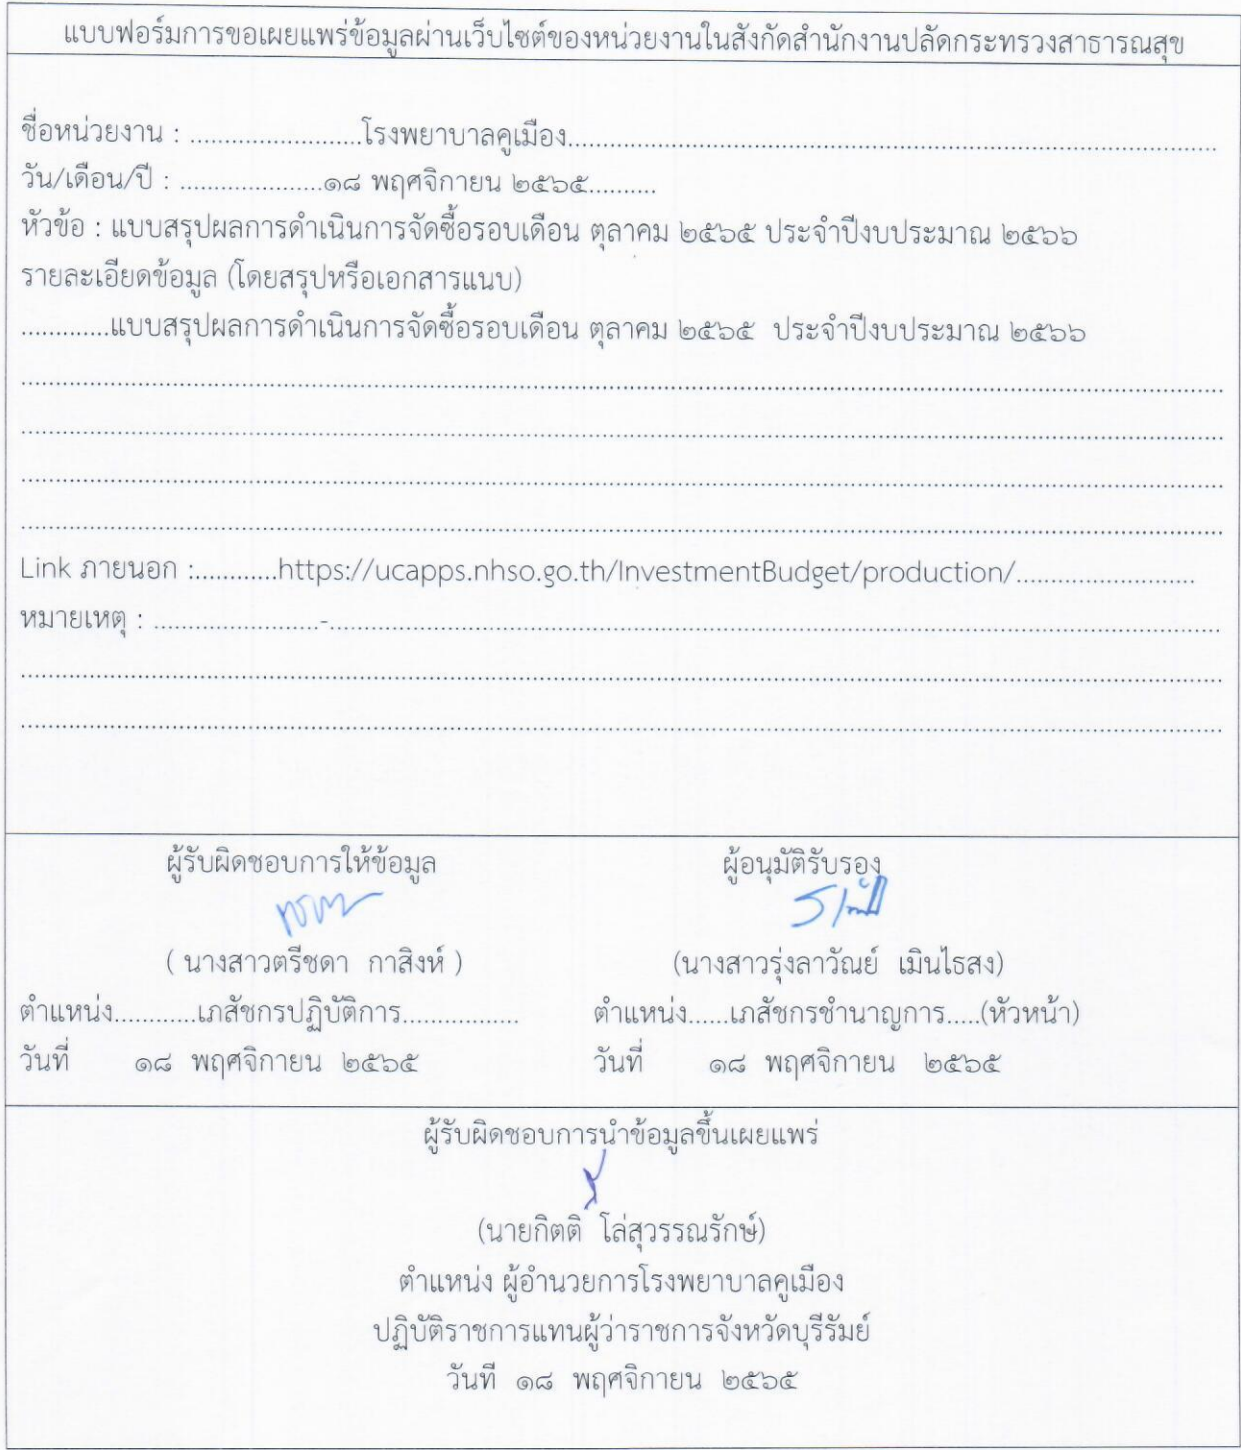 แบบฟอร์มการขอเผยแพร่ข้อมูลผ่านเว็บไซต์ของหน่วยงานในสังกัดสำนักงานปลัดกระทรวงสาธารณสุข
ชื่อหน่วยงาน : .........................โรงพยาบาลคูเมือง...............................................................................................
วัน/เดือน/ปี : .....................๑๘ พฤศจิกายน ๒๕๖๕..........
หัวข้อ : แบบสรุปผลการดำเนินการจัดซื้อรอบเดือน ตุลาคม ๒๕๖๕ ประจำปีงบประมาณ ๒๕๖๖
รายละเอียดข้อมูล (โดยสรุปหรือเอกสารแนบ)
.............แบบสรุปผลการดำเนินการจัดซื้อรอบเดือน ตุลาคม ๒๕๖๕ ประจำปีงบประมาณ ๒๕๖๖
Link ภายนอก :............https://ucapps.nhso.go.th/InvestmentBudget/production/..........................
หมายเหตุ : ........................-..................................................................................................................................
ผู้รับผิดชอบการให้ข้อมูล ผู้อนุมัติรับรอง
( นางสาวตรีชดา กาสิงห์ ) (นางสาวรุ่งลาวัณย์ เมินไธสง)
ตำแหน่ง............เภสัชกรปฏิบัติการ................. ตำแหน่ง......เภสัชกรชำนาญการ.....(หัวหน้า)
วันที่ ๑๘ พฤศจิกายน ๒๕๖๕ วันที่ ๑๘ พฤศจิกายน ๒๕๖๕
ผู้รับผิดชอบการนำข้อมูลขึ้นเผยแพร่
(นายกิตติ โล่สุวรรณรักษ์)
ตำแหน่ง ผู้อำนวยการโรงพยาบาลคูเมือง
ปฏิบัติราชการแทนผู้ว่าราชการจังหวัดบุรีรัมย์
วันที่ ๑๘ พฤศจิกายน ๒๕๖๕